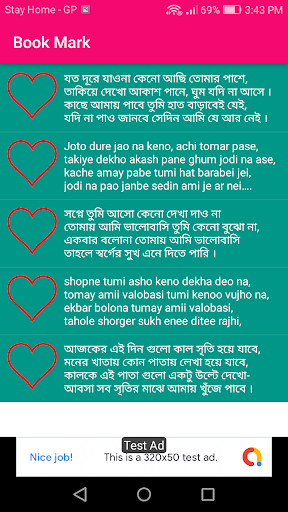 Stay Home - GP
51%
3:43 PM
Book Mark
যত দূরে যাওনা কেনো আছি তোমার পাশে,
তাকিয়ে দেখো আকাশ পানে, ঘুম যদি না আসে ।
কাছে আমায় পাবে তুমি হাত বাড়াবেই যেই,
যদি না পাও জানবে সেদিন আমি যে আর নেই ।
Joto dure jao na keno, achi tomar pase,
takiye dekho akash pane ghum jodi na ase,
kache amay pabe tumi hat barabei jei,
jodi na pao janbe sedin ami je ar nei....
সপ্নে তুমি আসো কেনো দেখা দাও না
তোমায় আমি ভালোবাসি তুমি কেনো বুঝো না,
একবার বলোনা তোমায় আমি ভালোবাসি
তাহলে স্বর্গের সুখ এনে দিতে পারি ।
shopne tumi asho keno dekha deo na,
tomay amii valobasi tumi kenoo vujho na,
ekbar bolona tumay amii valobasi,
tahole shorger sukh enee ditee rajhi,
আজকের এই দিন গুলো কাল সৃতি হয়ে যাবে,
মনের খাতায় কোন পাতায় লেখা হয়ে যাবে,
কালকে এই পাতা গুলো একটু উল্টে দেখো-
আবসা সব সৃতির মাঝে আমায় খুঁজে পাবে ।
Test Ad
Nice job!
This is a 320x50 test ad.